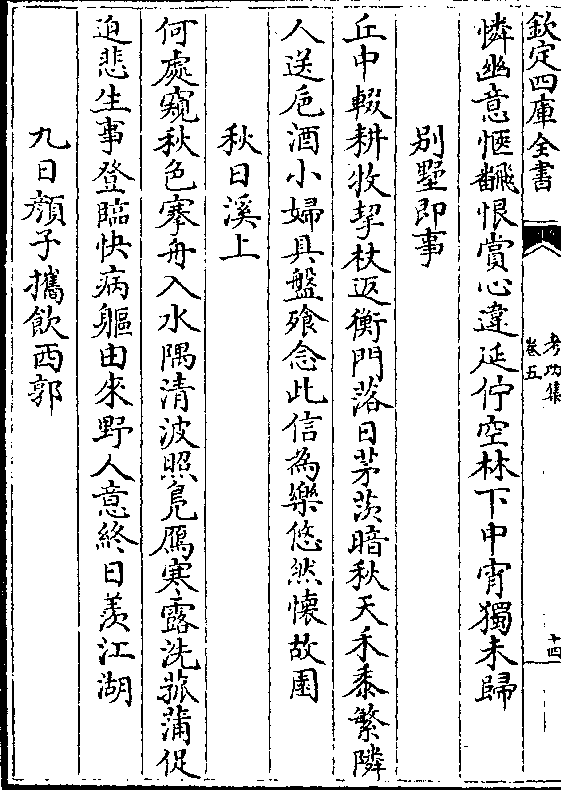 欽定四庫全書
考功集
卷五
十四
憐幽意愜翻恨賞心違延佇空林下中宵獨未歸
别墅即事
丘中輟耕牧挈杖返衡門落日茅茨暗秋天禾黍繁隣
人送巵酒小婦具盤飱念此信為樂悠然懐故園
秋日溪上
何處窺秋色搴舟入水隅清波照鳬鴈寒露洗菰蒲促
迫悲生事登臨快病軀由來野人意終日羨江湖
九日顔子攜飲西郭